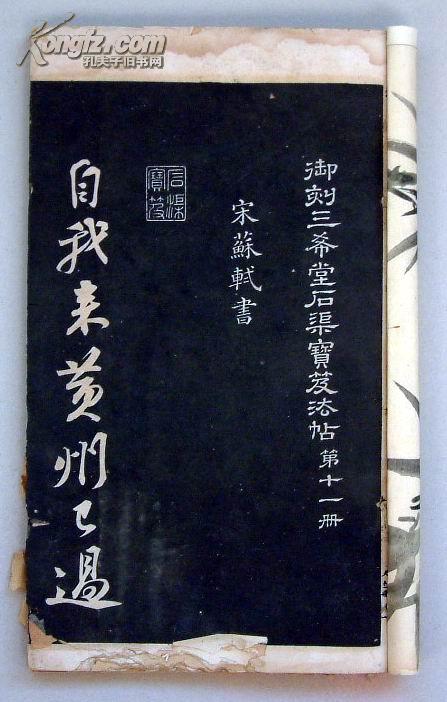 Kongfz.com
孔夫子旧书网
御刻三希堂石渠寶笈法帖 第十一册
宋蘇軾書
石渠寶笈
自我来黄州已過